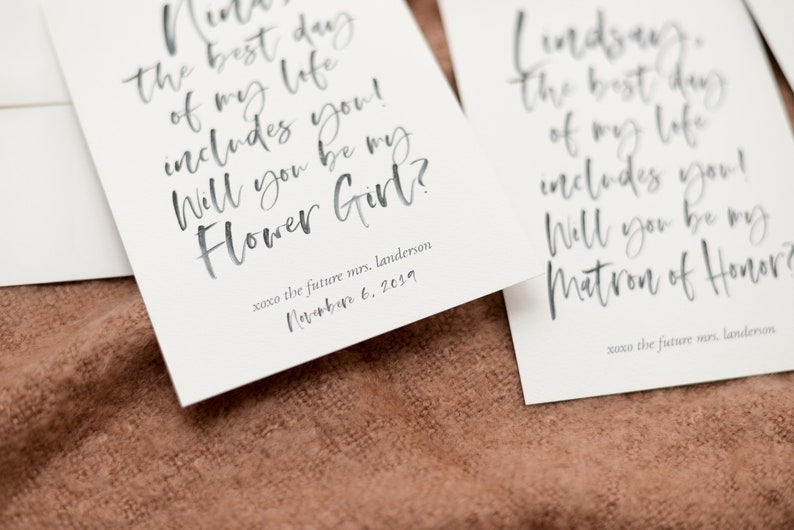 Nina,
the best day
of my life
includes you!
Will you be my
Flower Girl?
xoxo the future mrs. landerson
Novembere 6, 2019
Lindsay,
the best day
of my life
includes you!
Will you be my
Matron of Honor?
xoxo the future mrs. landerson